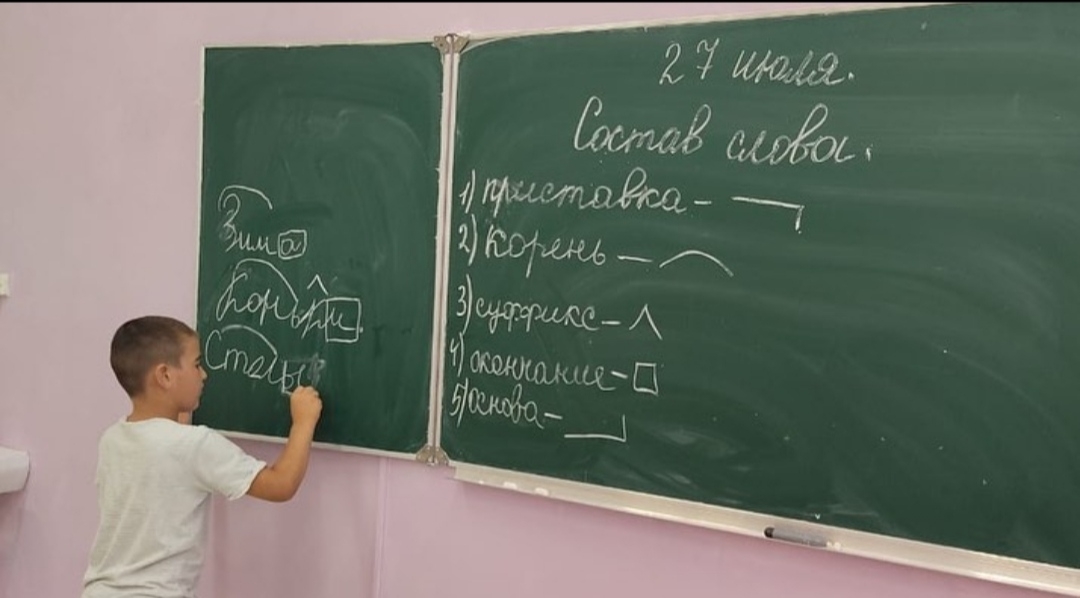 Зима
Коньки.
Столы
27 июля.
Состав слова.
1) приставка -
2) корень -
3) суффикс -
4) окончание -
5) основа -